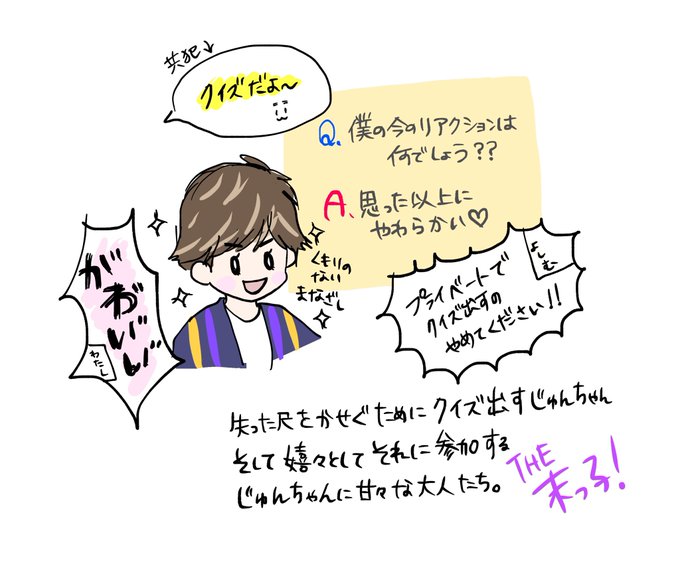 共犯↓
クイズだよ〜
Q. 僕の今のリアクションは
何でしょう??
A. 思った以上に
やわらかい♡
くもりの
ない
まなざし
がわいい
わたし
よしむ
プライベートで
クイズ出すの
やめてください!!
失った尺をかせぐために クイズ出すじゅんちゃん
そして 嬉々として それに参加する
じゅんちゃんに甘々な大人たち。
THE
末っ子!